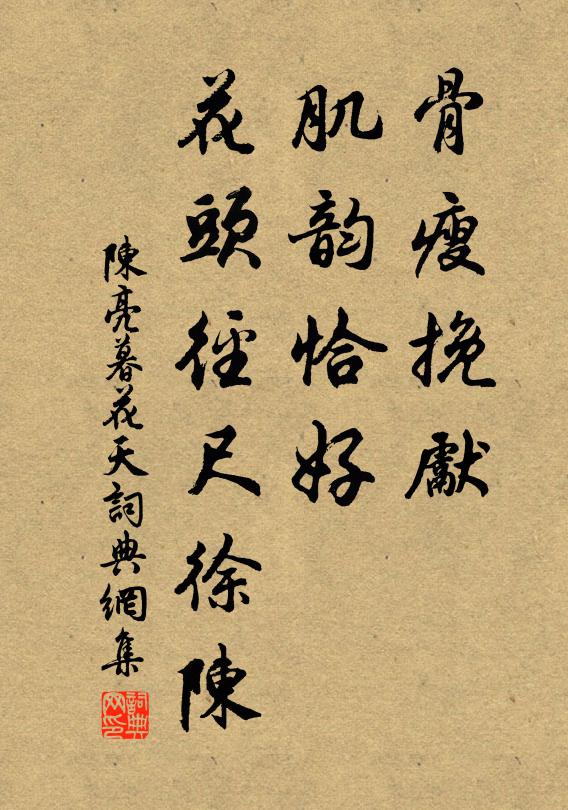 骨瘦挽獻
肌韵恰好
花頭徑尺徐陳
陳亮暮花天詞典網集
詞典
网印